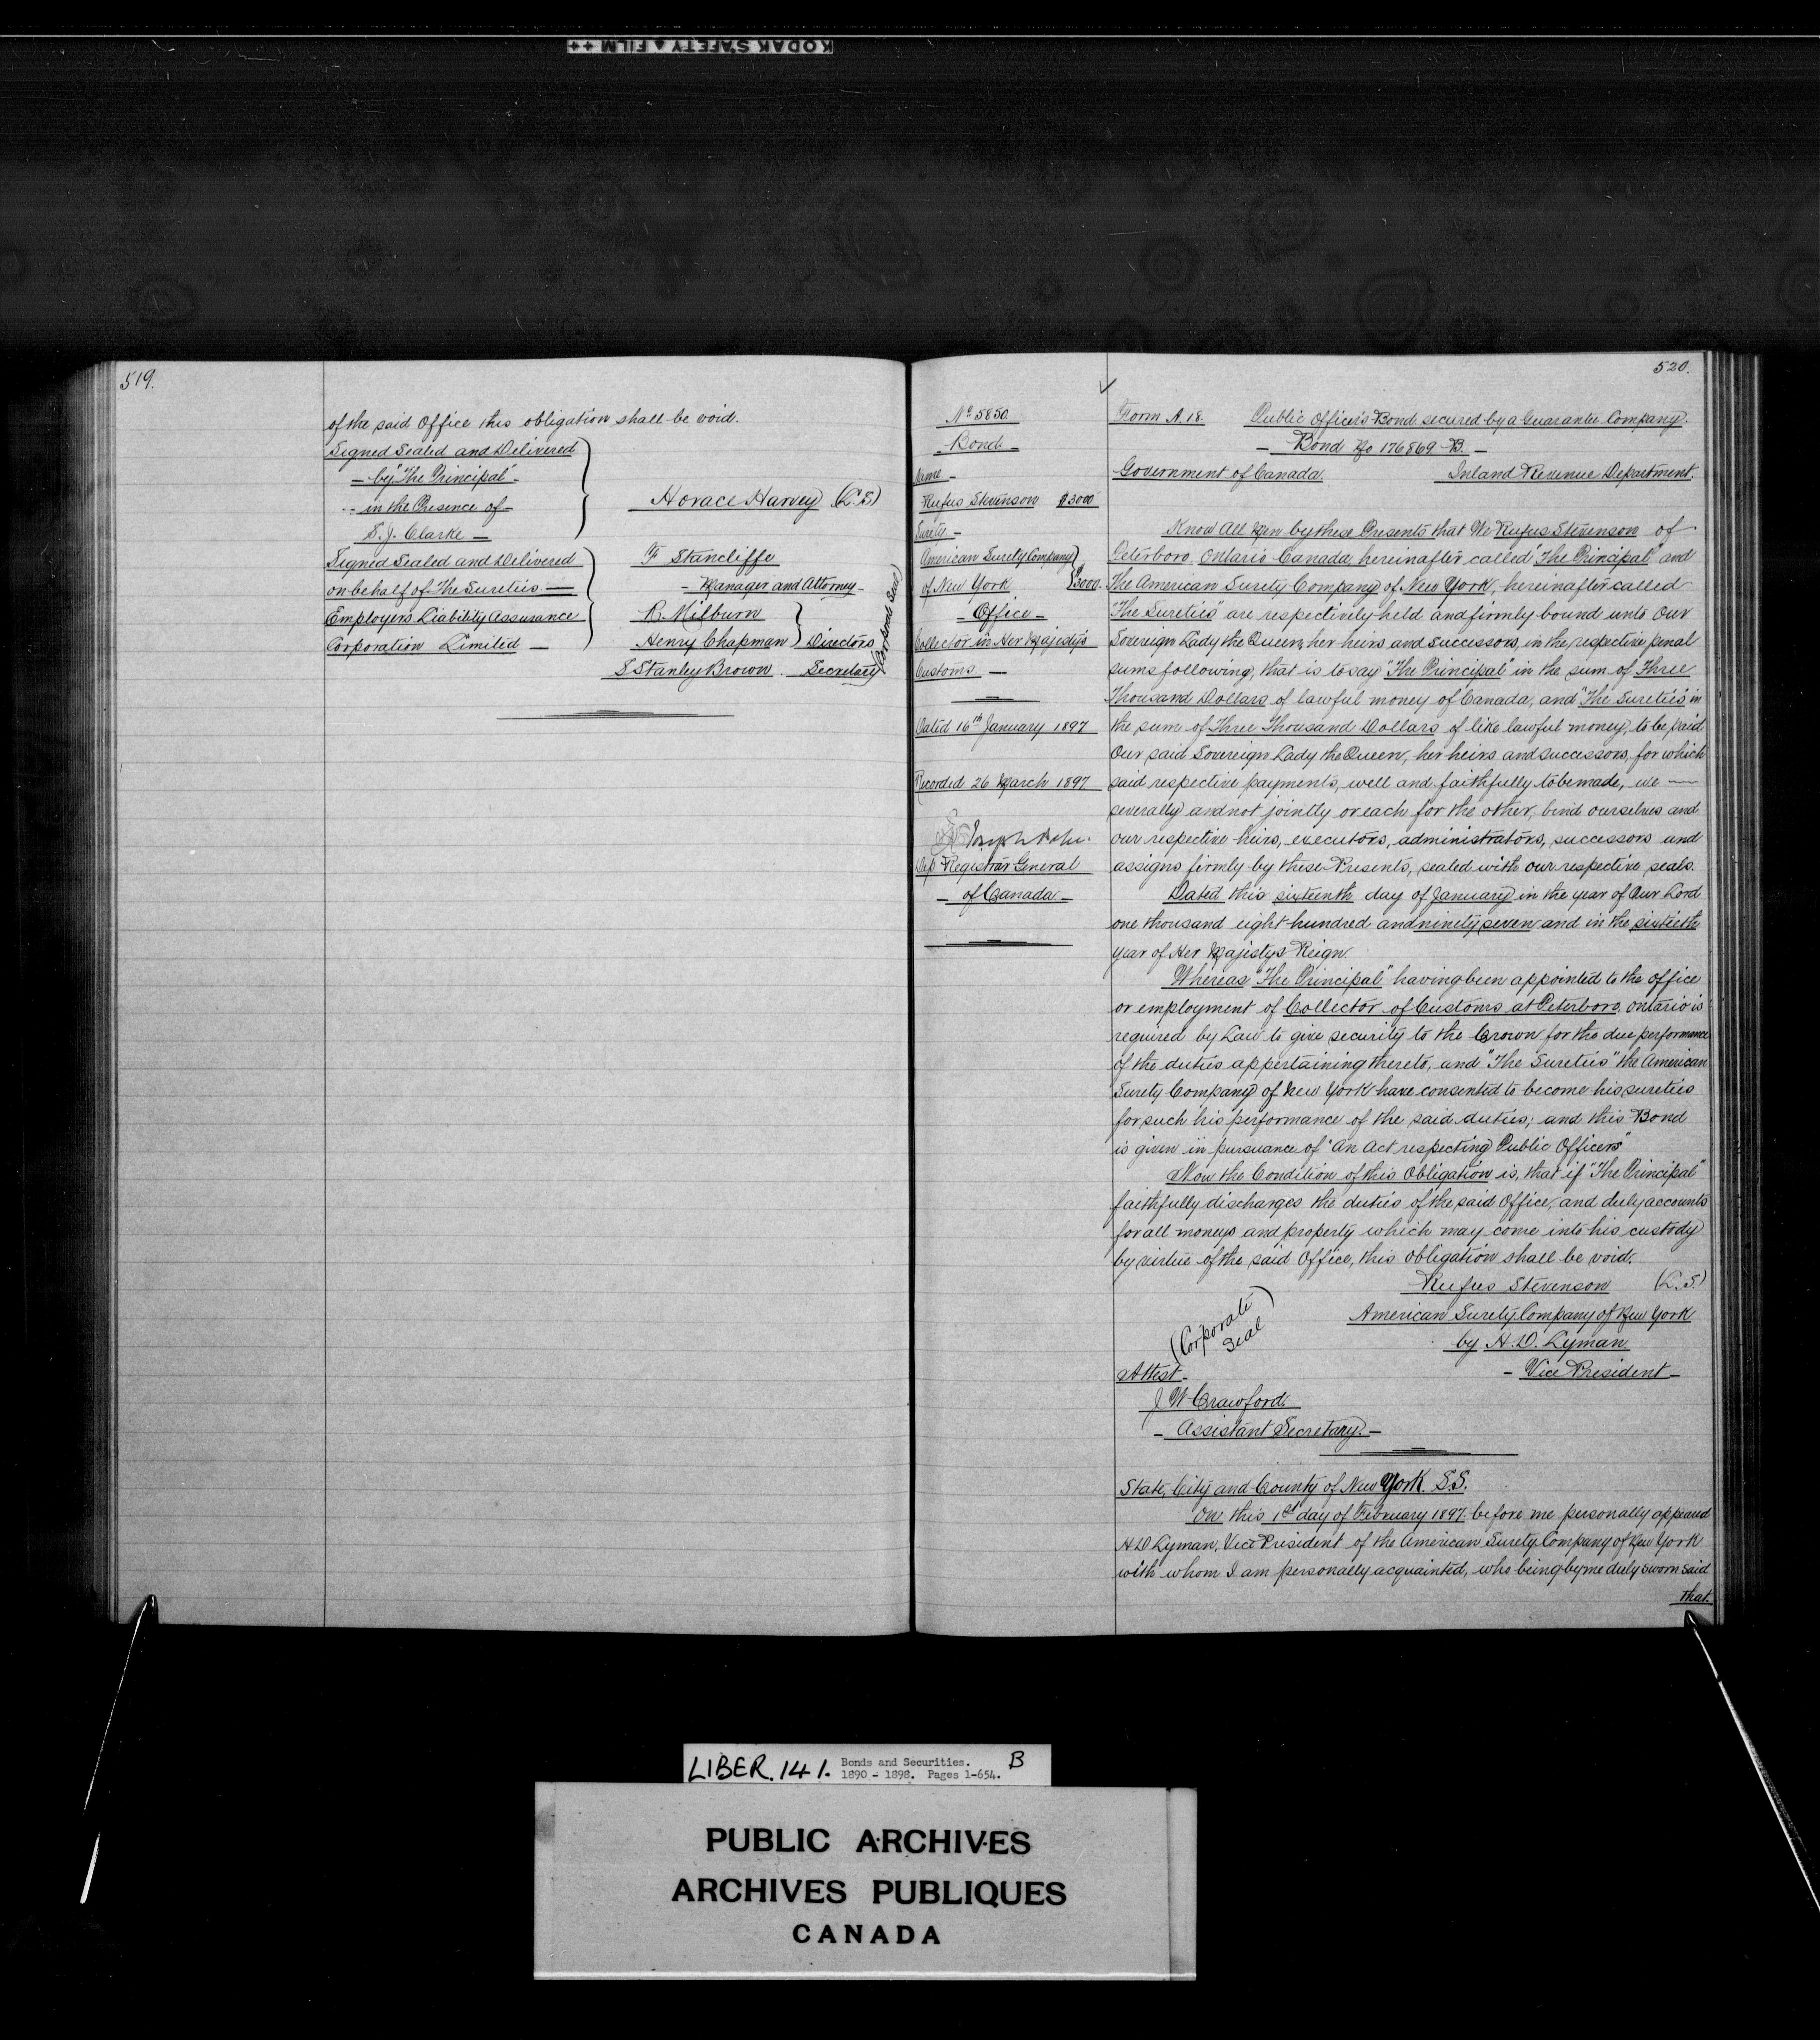 KODAK SAFETY ▲ FILM ++
519.
of the said Office this obligation shall be void.
Signed Sealed and Delivered
- by "The Principal" -
- in the Presence of -
S. J. Clarke -
Horace Harvey (L.S)
Signed Sealed and Delivered
on behalf of The Sureties -
Employers Liability Assurance
Corporation Limited -
F Stancliffe
- Manager and Attorney -
R. Milburn
Henry Chapman } Directors
S Stanley Brown. Secretary
Seal)
520.
No 5850
Bond -
Name -
Rufus Stevenson $3000
Surety -
American Surety Company
of New York } $3000.
- Office -
Collector in Her Majesty's
Customs -
Dated 16th January 1897
Recorded 26 March 1897
Dep Registrar General
- of Canada -
Form A 18. Public Officer's Bond secured by a Guarantee Company.
- Bond No 176869-B. -
Government of Canada. Inland Revenue Department.
Know All Men by these Presents that We Rufus Stevenson of
Peterboro, Ontario Canada, hereinafter called "The Principal" and
The American Surety Company of New York, hereinafter called
"The Sureties" are respectively held and firmly bound unto Our
Sovereign Lady the Queen, her heirs and successors, in the respective penal
sums following, that is to say "The Principal" in the sum of Three
Thousand Dollars of lawful money of Canada, and "The Sureties" in
the sum of Three Thousand Dollars of like lawful money, to be paid
Our said Sovereign Lady the Queen, her heirs and successors, for which
said respective payments, well and faithfully to be made, we -
severally and not jointly or each for the other, bind ourselves and
our respective heirs, executors, administrators, successors and
assigns firmly by these Presents, sealed with our respective seals.
Dated this sixteenth day of January in the year of Our Lord
one thousand eight hundred and ninety seven and in the sixtieth
year of Her Majesty's Reign.
Whereas "The Principal" having been appointed to the office
or employment of Collector of Customs at Peterboro, Ontario is
required by Law to give security to the Crown for the due performance
of the duties appertaining thereto, and "The Sureties" the American
Surety Company of New York have consented to become his sureties
for such his performance of the said duties; and this Bond
is given in pursuance of "An Act respecting Public Officers"
Now the Condition of this Obligation is, that if "The Principal"
faithfully discharges the duties of the said Office, and duly accounts
for all moneys and property which may come into his custody
by virtue of the said Office, this obligation shall be void.
Rufus Stevenson (L.S.)
American Surety Company of New York
by H. D. Lyman.
- Vice President -
(Corporate
Seal)
Attest -
J W Crawford.
- Assistant Secretary. -
State, City and County of New York. S.S.
On this 1st day of February 1897. before me personally appeared
H D Lyman, Vice President of the American Surety Company of New York
with whom I am personally acquainted, who being by me duly sworn said
that.
LIBER. 141. Bonds and Securities. B
1890 - 1898. Pages 1-654.
PUBLIC ARCHIVES
ARCHIVES PUBLIQUES
CANADA